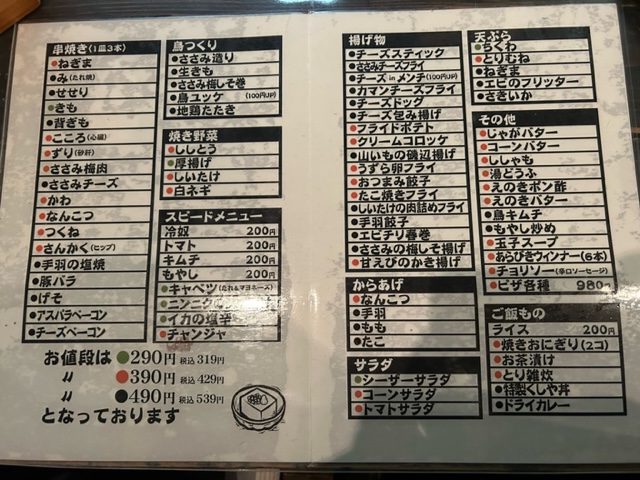 串焼き(1皿3本)
●ねぎま
●み(たれ焼)
●せせり
●きも
●背ぎも
●こころ(心臓)
●ずり(砂肝)
●ささみ梅肉
●ささみチーズ
●かわ
●なんこつ
●つくね
●さんかく(ヒップ)
●手羽の塩焼
●豚バラ
●げそ
●アスパラベーコン
●チーズベーコン
鳥つくり
●ささみ造り
●生きも
●ささみ梅しそ巻
●鳥ユッケ(100円UP)
●地鶏たたき
焼き野菜
●ししとう
●厚揚げ
●しいたけ
●白ネギ
スピードメニュー
冷奴 200円
トマト 200円
キムチ 200円
もやし 200円
●キャベツ(たれ&マヨネーズ)
●イカの塩辛
●チャンジャ
お値段は●290円 税込319円
〃 ●390円 税込429円
〃 ●490円 税込539円
となっております
揚げ物
●チーズスティック
●ささみチーズフライ
●チーズinメンチ(100円UP)
●カマンチーズフライ
●チーズドッグ
●チーズ包み揚げ
●フライドポテト
●クリームコロッケ
●山いもの磯辺揚げ
●うずら卵フライ
●おつまみ餃子
●たこ焼きフライ
●しいたけの肉詰めフライ
●手羽餃子
●エビチリ春巻
●ささみの梅しそ揚げ
●甘えびのかき揚げ
からあげ
●なんこつ
●手羽
●もも
●たこ
サラダ
●シーザーサラダ
●コーンサラダ
●トマトサラダ
天ぷら
●ちくわ
●とりむね
●ねぎま
●エビのフリッター
●さきいか
その他
●じゃがバター
●コーンバター
●ししゃも
●湯どうふ
●えのきポン酢
●えのきバター
●鳥キムチ
●もやし炒め
●玉子スープ
●あらびきウィンナー(6本)
●チョリソー(辛口ソーセージ)
●ピザ各種 980円
ご飯もの
ライス 200円
●焼きおにぎり(2コ)
●お茶漬け
●とり雑炊
●特製くしや丼
●ドライカレー